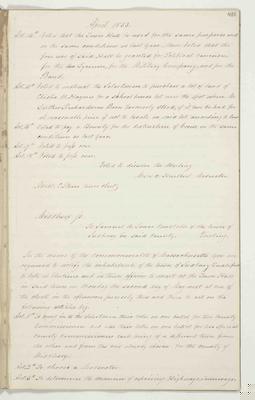 April 1853.
Art. 4th Voted that the Town Hall be used for the same purposes and
on the same conditions as last year. Also Voted that the
free use of said Hall be granted for Political caucuses
for the Lyceum, for the Military Company and for the
Band.
Art. 5th Voted to instruct the Selectmen to purchase a lot of land of
for a school house lot near the spot where
Barn formerly stood, if it can be had for
a reasonable price if not to locate on said lot according to law
Voted to pay a Bounty for the destruction of Crows on the same
conditions as last year.
Voted to pass over.
Voted to pass over.
Voted to dissolve the Meeting
Moderator
Attest. Town Clerk
Middlesex ss.
To Samuel Constable of the town of
in said County. Greeting.
In the name of the Commonwealth of Massachusetts you are
required to notify the inhabitants of the town of qualified
to vote in elections and in Town affairs to meet at the Town Hall
in said town on Monday the second day of May next at one of
the clock in the afternoon precisely then and there to act on the
following articles viz.
Art. 1st To bring in to the Selectmen their votes on one ballot for two County
Commissioners and also their votes on one ballot for two Special
County Commissioners each being of a different town from
the other and from the one already chosen for the County of
Middlesex.
Art. 2d To choose a Moderator.
Art. 3d To determine the manner of repairing Highways